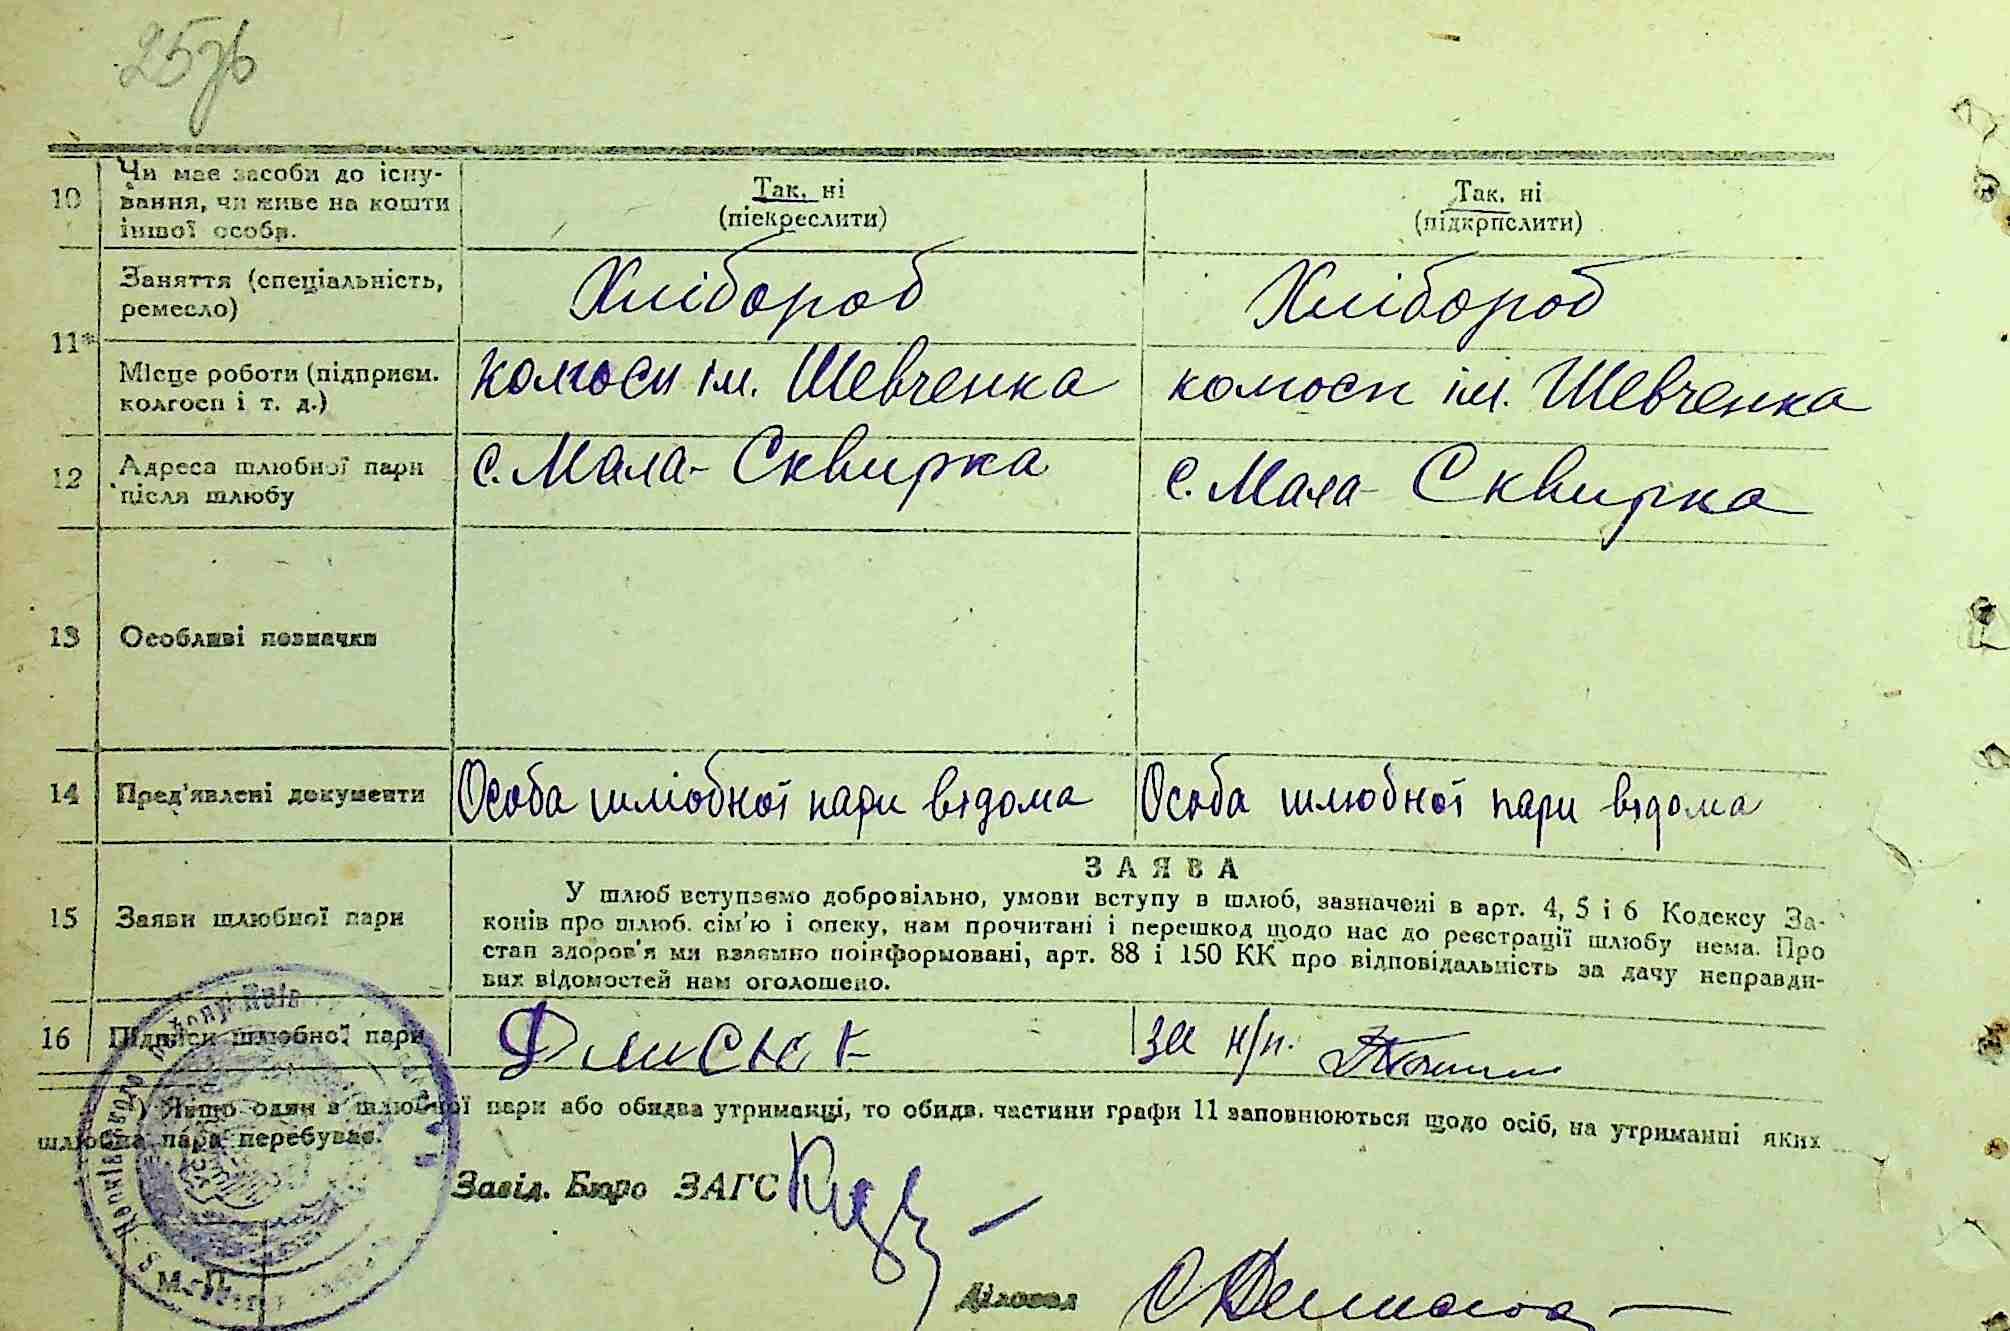 25зв
10
Чи має засоби до існу-
вання, чи живе на кошти
іншої особи.
Так, ні
(піекреслити)
Так. ні
(підкрпслити)
11*
Заняття (спеціальність,
ремесло)
Хлібороб
Хлібороб
Місце роботи (підприєм.
колгосп і т. д.)
колгосп ім. Шевченка
колгосп ім. Шевченка
12
Адреса шлюбної пари
після шлюбу
с. Мала-Сквирка
с. Мала-Сквирка
13
Особливі позначки
14
Пред'явлені документи
Особа шлюбної пари відома
Особа шлюбної пари відома
15
Заяви шлюбної пари
ЗАЯВА
У шлюб вступаємо добровільно, умови вступу в шлюб, зазначені в арт. 4, 5 і 6 Кодексу За-
конів про шлюб. сім'ю і опеку, нам прочитані і перешкод щодо нас до реєстрації шлюбу нема. Про
стан здоров'я ми взаємно поінформовані, арт. 88 і 150 КК про відповідальність за дачу неправди-
вих відомостей нам оголошено.
16
Підписи шлюбної пари
за н/п.
*) Якщо один з шлюбної пари або обидва утриманці, то обидв. частини графи 11 заповнюються щодо осіб, на утриманні яких
шлюбна пара перебуває.
Завід. Бюро ЗАГС
М. П.
Діловод